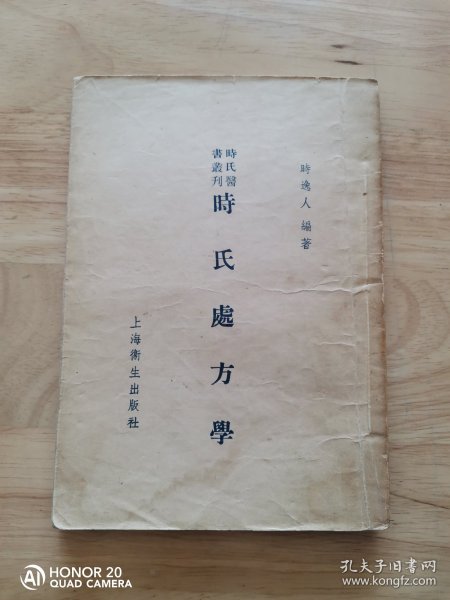 時逸人 編著
時氏醫
書叢刊
時氏處方學
上海衛生出版社
AI HONOR 20
QUAD CAMERA
孔夫子旧书网
www.kongfz.com